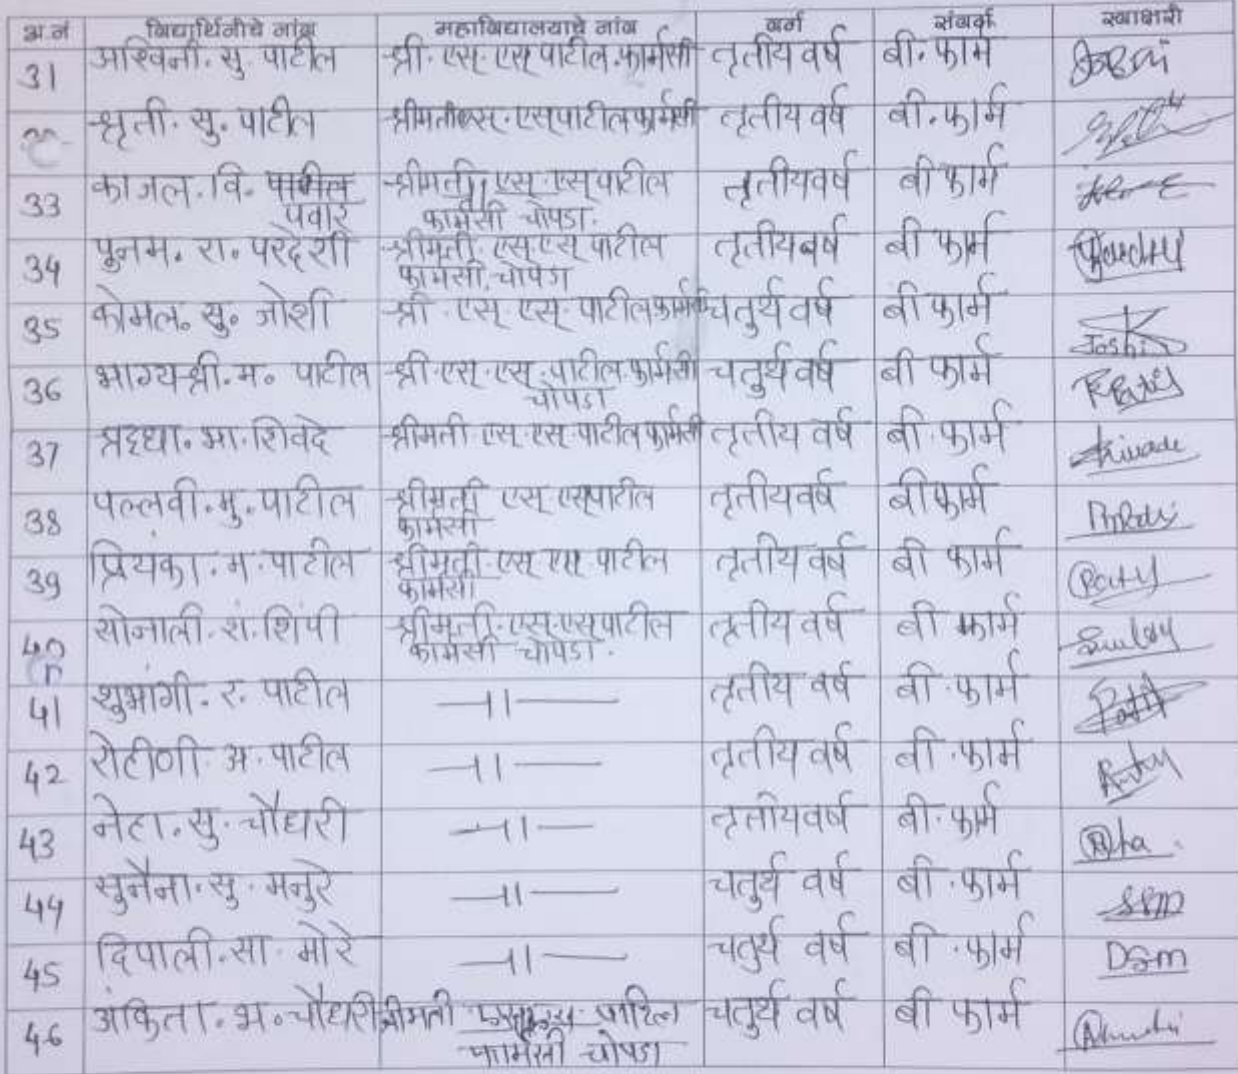 अ.नं विद्यार्थिनीचे नांव महाविद्यालयाचे नांव वर्ग संवर्ग स्वाक्षरी
31 अश्विनी. सु. पाटील श्री. एस. एस पाटील फार्मसी तृतीय वर्ष बी. फार्म
श्रृती. सु. पाटील श्रीमती एस. एस पाटील फार्मसी तृतीय वर्ष बी. फार्म
33 काजल. वि. पवार श्रीमती एस. एस पाटील फार्मसी चोपडा. तृतीय वर्ष बी फार्म
34 पुनम. रा. परदेशी श्रीमती एस एस पाटील फार्मसी चोपडा तृतीय वर्ष बी फार्म
35 कोमल. सु. जोशी श्री. एस. एस. पाटील फार्मसी चतुर्थ वर्ष बी फार्म Joshi
36 भाग्यश्री. म. पाटील श्री. एस. एस. पाटील फार्मसी चोपडा चतुर्थ वर्ष बी फार्म
37 श्रद्धा. भा. शिवदे श्रीमती एस. एस. पाटील फार्मसी तृतीय वर्ष बी. फार्म
38 पल्लवी. मु. पाटील श्रीमती एस एस पाटील फार्मसी तृतीय वर्ष बी फार्म
39 प्रियंका. म. पाटील श्रीमती. एस एस पाटील फार्मसी तृतीय वर्ष बी फार्म
40 सोनाली. शं. शिंपी श्रीमती. एस. एस पाटील फार्मसी चोपडा. तृतीय वर्ष बी फार्म
41 शुभांगी. र. पाटील —||— तृतीय वर्ष बी. फार्म
42 रोहीणी. अ. पाटील —||— तृतीय वर्ष बी. फार्म
43 नेहा. सु. चौधरी —||— तृतीय वर्ष बी. फार्म
44 सुनैना. सु. मनुरे —||— चतुर्थ वर्ष बी. फार्म SSM
45 दिपाली. सा. मोरे —||— चतुर्थ वर्ष बी. फार्म DSm
46 अंकिता. भ. चौधरी श्रीमती पाटिल फार्मसी चोपडा चतुर्थ वर्ष बी फार्म